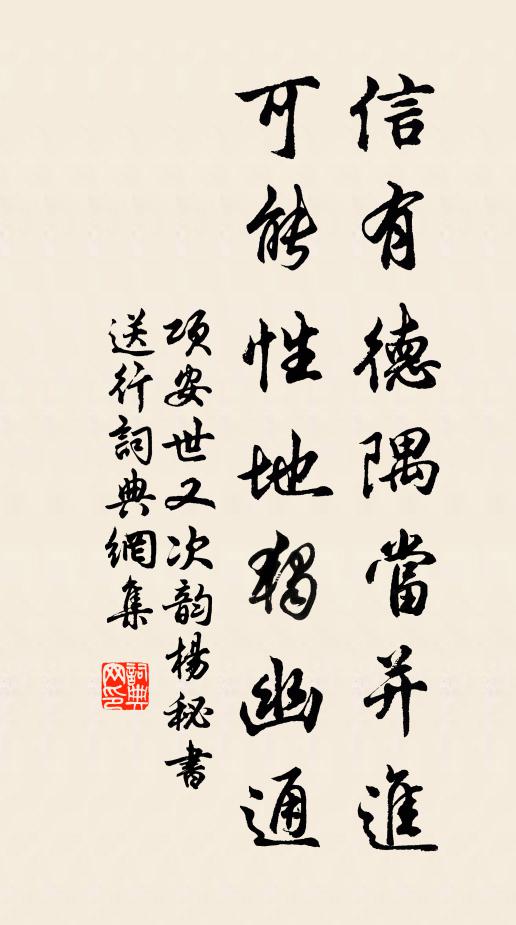 信有德隅當并進
可能性地獨幽通
項安世又次韵楊秘書
送行詞典網集
詞典網印